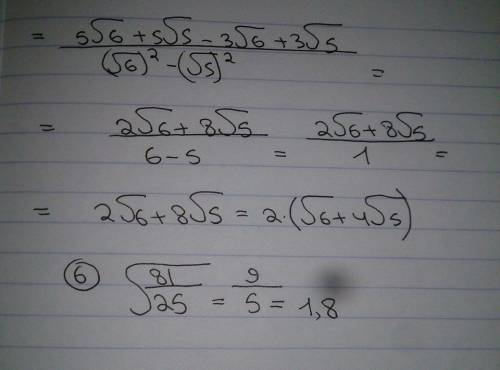 = (5√6 + 5√5 - 3√6 + 3√5) / ((√6)² - (√5)²) =
= (2√6 + 8√5) / (6 - 5) = (2√6 + 8√5) / 1 =
= 2√6 + 8√5 = 2·(√6 + 4√5)
⑥ √(81/25) = 9/5 = 1,8